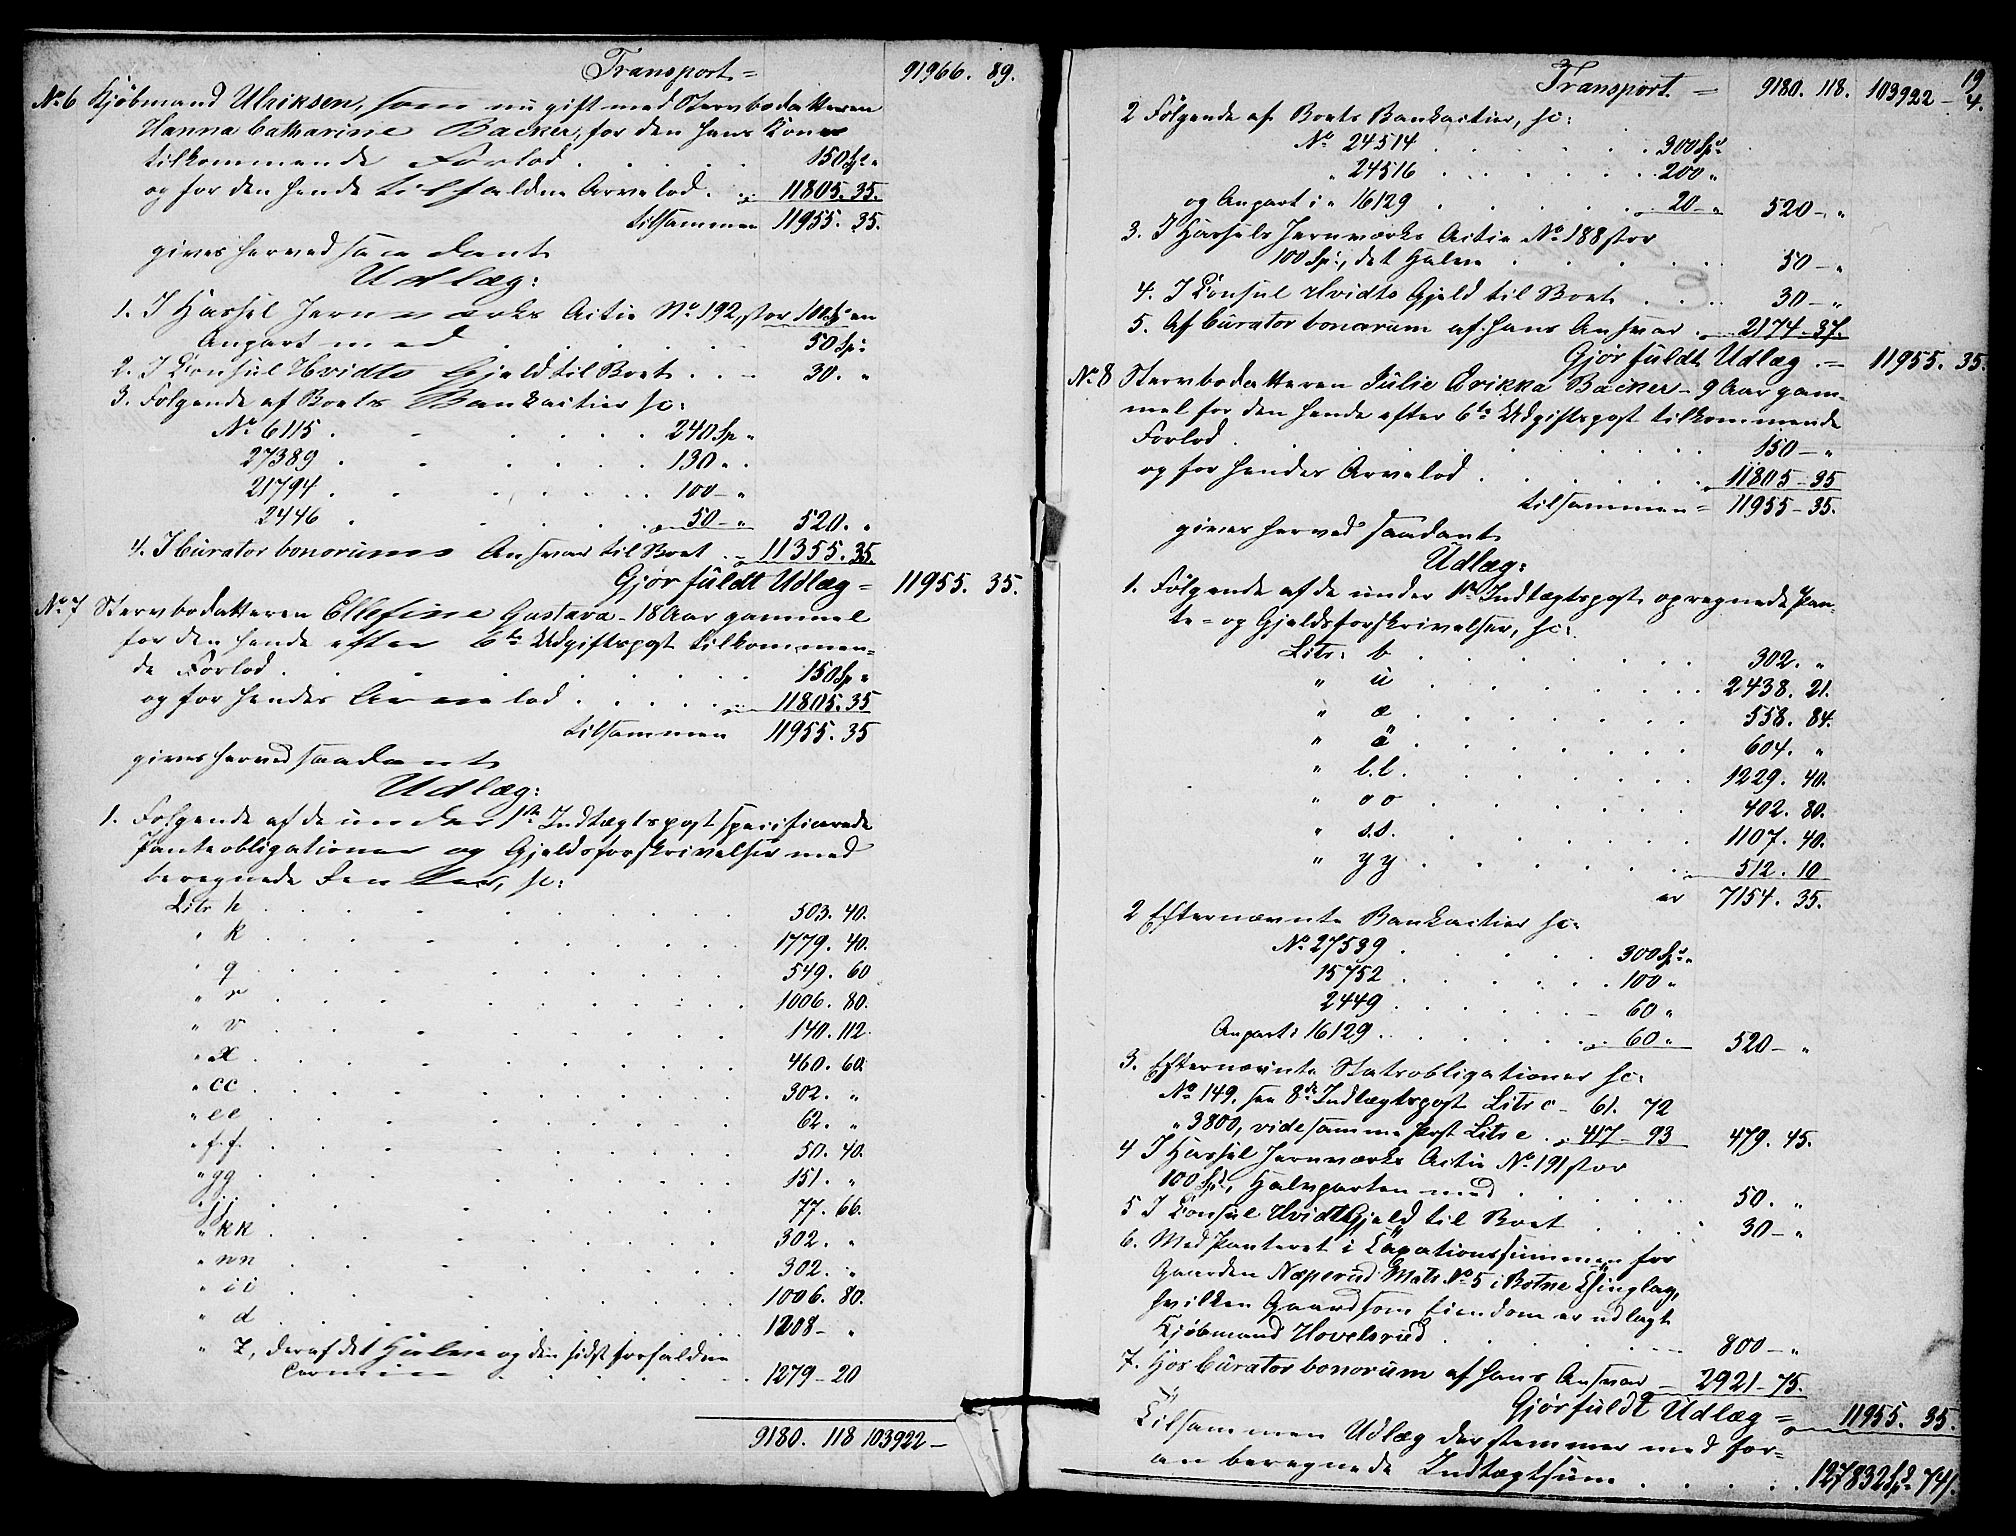 Transport = 91966. 89.
No 6 Kjøbmand Ulriksen, som nu gift med Stervbodatteren
Hanna Catharine Backer, for den hans Kone
tilkommende Forlod . . . . 150 Sp "
og for den hende tilfaldne Arvelod . . 11805. 35.
tilsammen 11955. 35.
gives herved saadant
Udlæg:
1. I Hassel Jernværks Actie No 192, stor 100 Sp en
Anpart med . . . . 50 Sp
2. I Consul Hvidts Gjeld til Boet . . - 30. "
3. Følgende af Boets Bankactier sc:
No 6115 . . . . 240 Sp "
27389 . . . . 130 " .
21794 . . . . 100 - "
2446 . . . . 50 - " 520. "
4. I Curator bonorums Ansvar til Boet . - 11355. 35.
Gjør fuldt Udlæg = 11955. 35.
No 7 Stervbodatteren Ellefine Gustava - 18 Aar gammel
for den hende efter 6te Udgiftspost tilkommen=
de Forlod . . . . 150 Sp "
og for hendes Arvelod . . . . 11805. 35
tilsammen 11955. 35
gives herved saadant
Udlæg:
1. Følgende af de under 1ste Indtægtspost specificerede
Panteobligationer og Gjeldsforskrivelser med
beregnede Renter, sc:
Litr h . . . . 503. 40.
" k . . . . 1779. 40.
" q . . . . 549. 60
" r . . . . 1006. 80.
" v . . . . 140. 112.
" x . . . . 460. 60.
" cc . . . . 302. "
" ee . . . . 62. "
" f.f. . . . . 50. 40.
" gg . . . . 151. "
" jj . . . . 77. 66.
" kk . . . . 302. "
" nn . . . . 302. "
" ii . . . . 1006. 80.
" d . . . . 1208 - "
" z, deraf det Halve og den sidst forfaldne
Termin . . . . 1279 - 20
9180. 118 103922 -
19
Transport. = 9180. 118. 103922 - 4.
2 Følgende af Boets Bankactier, sc:
No 24514 . . . . 300 Sp "
" 24516 . . . . 200 "
og Anpart i " 16129 . . . . 20 - " 520 - "
3. I Hassels Jernværks Actie No 188 stor
100 Sp, det Halve . . . . 50 - "
4. I Consul Hvidts Gjeld til Boet . . . 30 - "
5. Af Curator bonorum af hans Ansvar . 2174 - 37.
Gjør fuldt Udlæg . = 11955. 35.
No 8 Stervbodatteren Julie Erikka Backer - 9 Aar gam-
mel for den hende efter 6te Udgiftspost tilkommende
Forlod . . . . 150 - "
og for hendes Arvelod . . . . 11805 - 35
tilsammen = 11955 - 35.
gives herved saadant
Udlæg:
1. Følgende af de under 1ste Indtægtspost opregnede Pan-
te = og Gjeldsforskrivelser, sc:
Litr: b . . . . 302. "
" u . . . . 2438. 21.
" æ . . . . 558. 84.
" ä . . . . 604. "
" l.l. . . . . 1229. 40.
" oo . . . . 402. 80.
" s.s. . . . . 1107. 40.
" yy . . . . 512. 10
er 7154. 35.
2 Efternævnte Bankactier sc:
No 27539 . . . . 300 Sp "
15752 . . . . 100 "
2449 . . . . 60 "
Anpart i 16129 . . . . 60 " 520 - "
3. Efternævnte Statsobligationer sc:
No 149. see 8de Indtægtspost Litr c - 61. 72
" 3800, vide samme Post Litr e . . 417 - 93 479. 45.
4 I Hassel Jernværks Actie No 191 stor
100 Sp, Halvparten med . . . . 50. "
5 I Consul Hvidts Gjeld til Boet . . . 30 - "
6. Med Panteret i Taxationssummen for
Gaarden Næperud Matr. No 5 i Botne Thinglag,
hvilken Gaard som Eiendom er udlagt
Kjøbmand Hovelsrud . . . . 800 - "
7. Hos Curator bonorum af hans Ansvar - 2921 - 75.
Gjør fuldt Udlæg = 11955. 35.
Tilsammen Udlæg der stemmer med for-
an beregnede Indtægtsum . . . . 127832 Sp 74 s.